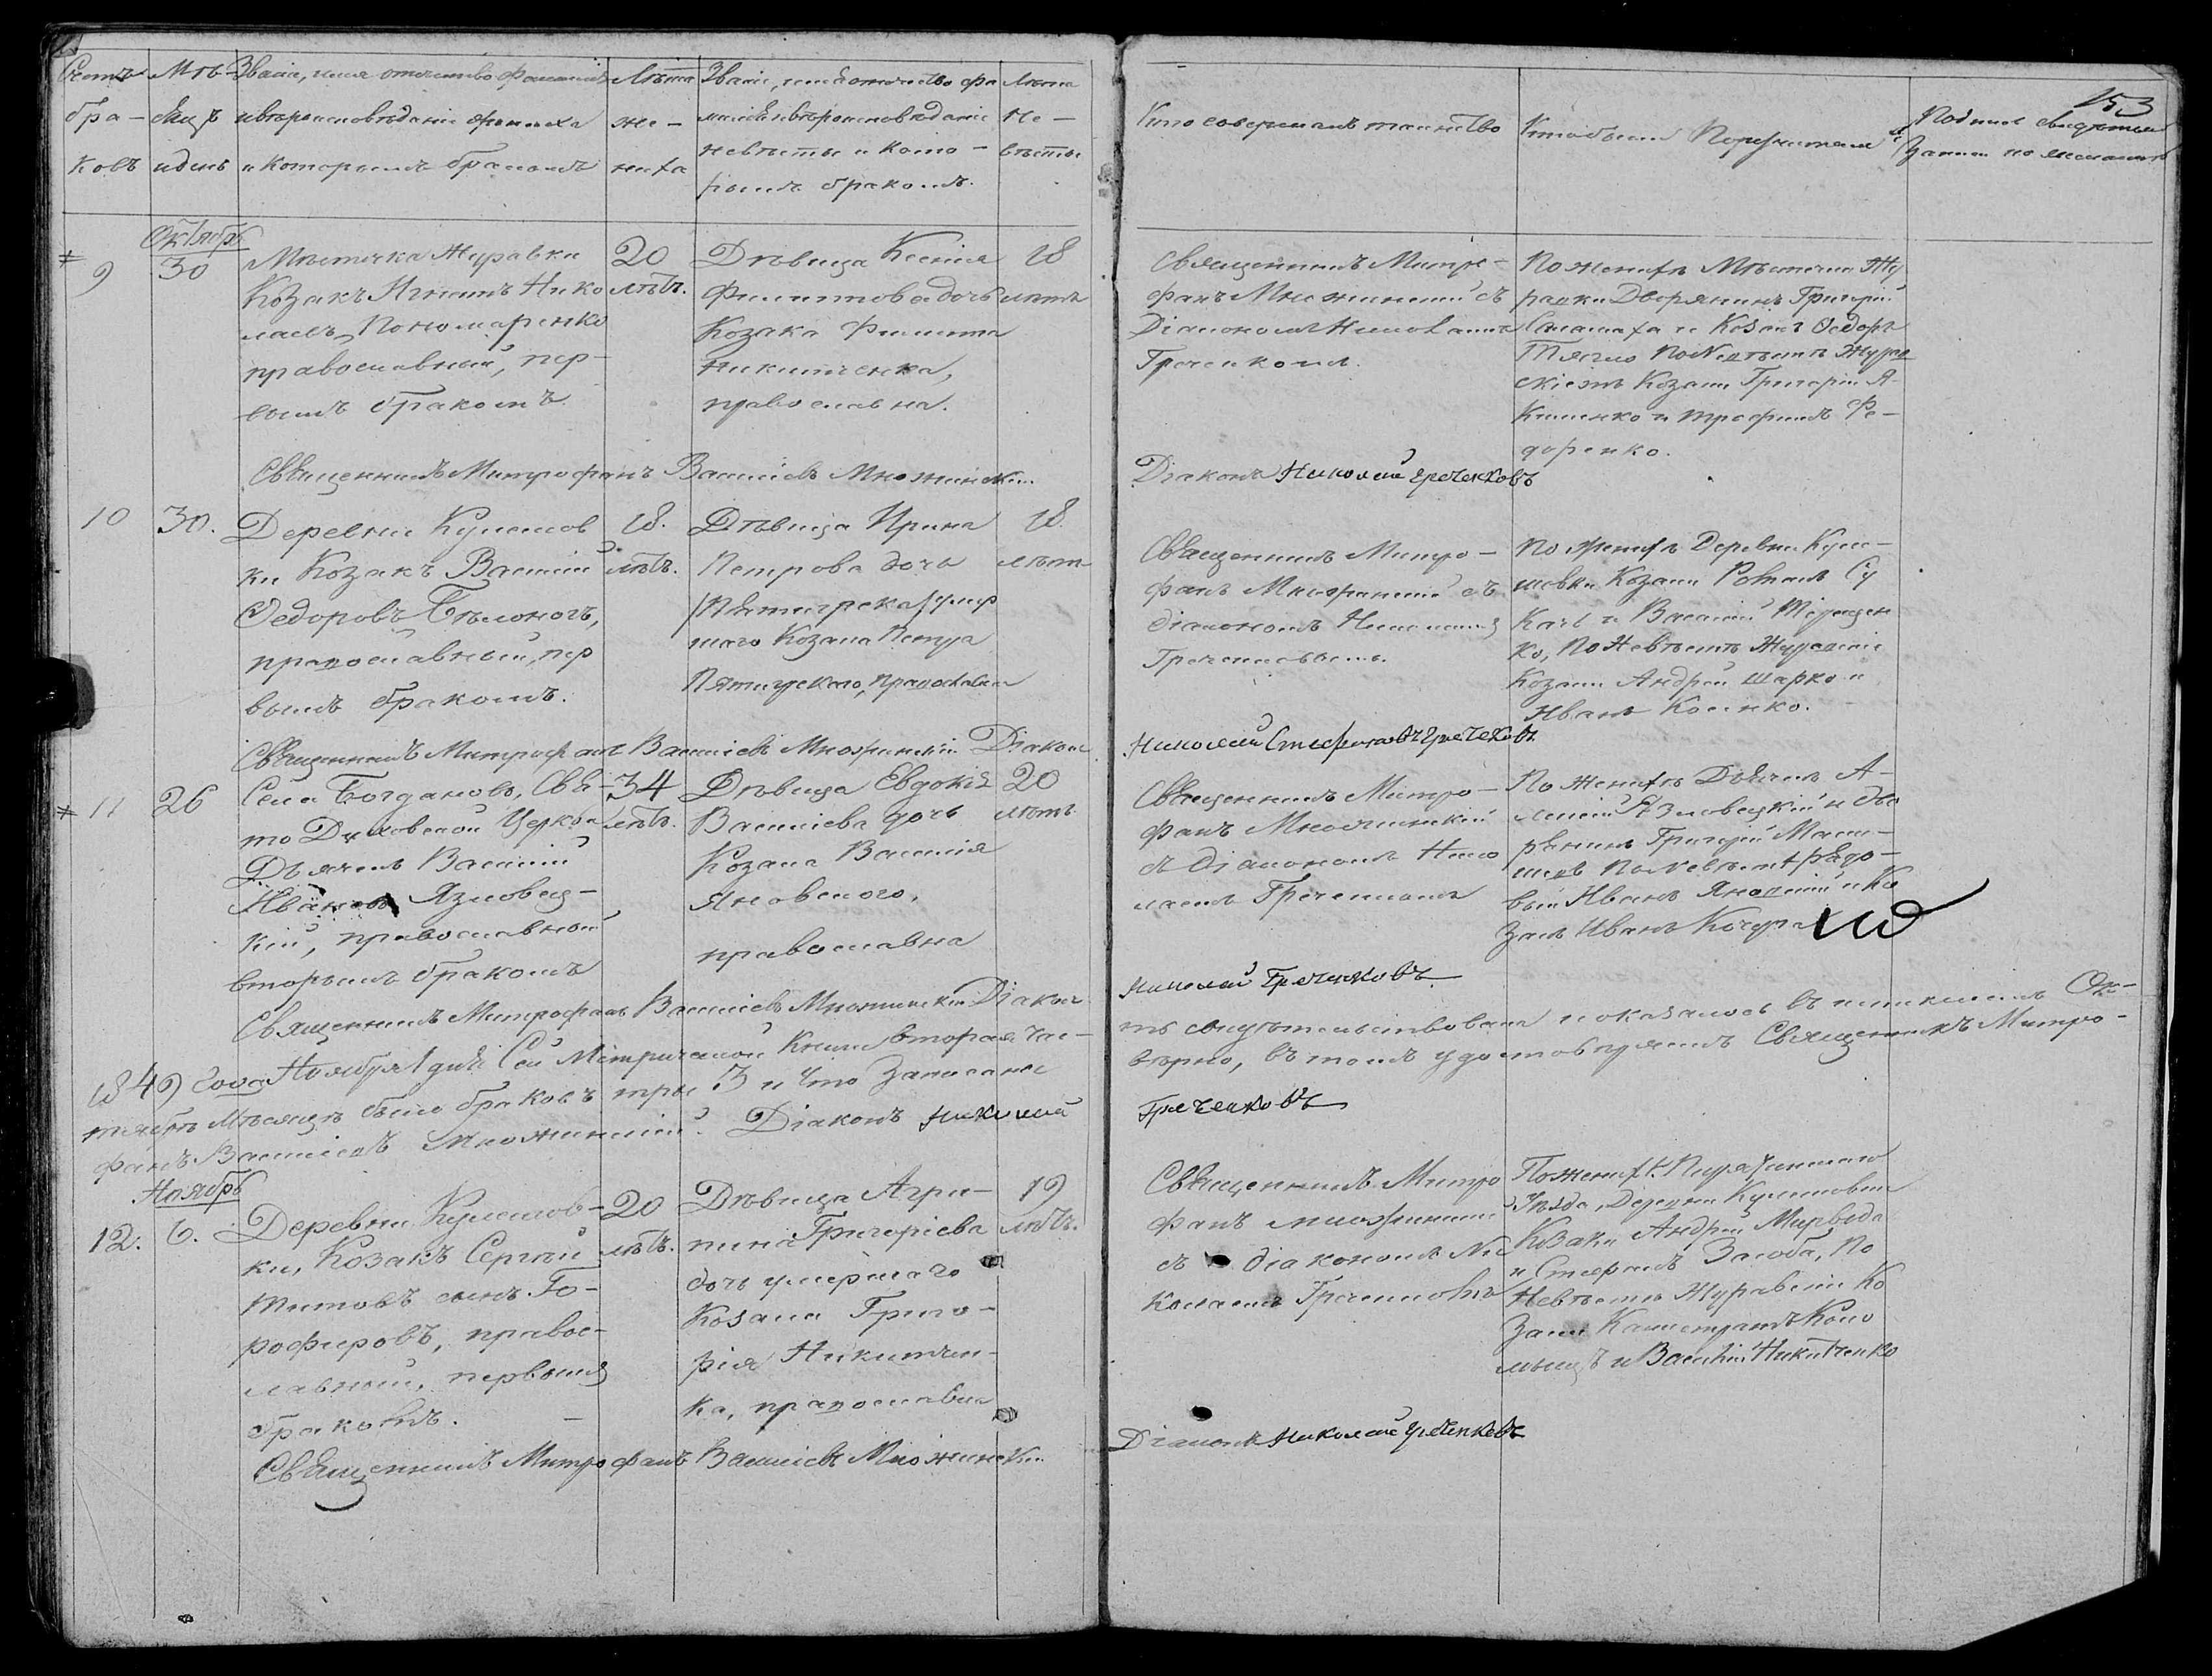 Счетъ бра-ковъ
Мѣ-сяцъ и день
Званіе, имя отечество фамилія
и вѣроисповѣданіе жениха
и которымъ бракомъ
Лѣта
же-
ниха
Званіе, имя отечество фа
милія и вѣроисповѣданіе
невѣсты и кото-
рымъ бракомъ.
Лѣта
не-
вѣсты
Кто совершалъ таинство
Кто были Поручители
153
Октябрь
9
30
Мѣстечка Журавки
Козакъ Игнатъ Нико
лаевъ Пономаренко
православный, пер-
вымъ бракомъ.
20
лѣтъ.
Дѣвица Ксенія
Филиппова дочь
Козака Филиппа
Никитченка,
православна.
18
лѣтъ
Священникъ Митро-
фанъ Мложинскій съ
Діакономъ Николаемъ
Греченковы.
По женихѣ Мѣстечка Жу
равки Дворянинъ Григорій
и Козакъ Федоръ
Тягло По Невѣстѣ Журав
скіе Козаки Григорій Я-
кименко и Трофимъ Фе-
доренко.
Священникъ Митрофанъ Василіевъ Мложинскій
Діаконъ Николай Греченковъ
10
30.
Деревни Кулешов
ки Козакъ Василій
Федоровъ Бѣлоногъ,
православный, пер
вымъ бракомъ.
18.
лѣтъ.
Дѣвица Ирина
Петрова дочь
Пятигорска умер
шаго Козака Петра
Пятигорскаго, православна
18.
лѣтъ
Священникъ Митро-
фанъ Мложинскій съ
діакономъ Николаемъ
Греченковымъ.
По женихѣ Деревни Куле-
шовки Козаки Романъ Су
качъ и Василій Терещен
ко, По Невѣстѣ Журавскіе
Козаки Андрей Шарко и
Иванъ Косенко.
Священникъ Митрофанъ Василіевъ Мложинскій Діаконъ
Николай Стефановъ Греченковъ
11
26
Села Богдановъ, Свя-
то Духовской Церкви
Дьячекъ Василій
Ивановъ Язловец-
кій, православной
вторымъ бракомъ
34
лѣтъ.
Дѣвица Евдокія
Василіева дочь
Козака Василія
Яновского,
православна
20
лѣтъ
Священникъ Митро-
фанъ Мложинскій
съ діакономъ Нико
лаемъ Греченковымъ
По женихѣ Дьячекъ А-
лексій Язловецкій и Дво
рянинъ Григорій
По невѣстѣ рядо-
вый Иванъ Яновскій и Ко
закъ Иванъ Кочура
Священникъ Митрофанъ Василіевъ Мложинскій Діаконъ
Николай Греченковъ
1849 года Ноября 1 дня Сей Метрической Книги вторая час-
ть свидѣтельствована и оказалось въ минувшемъ Ок-
тябрѣ Мѣсяцѣ было браковъ три 3 и что записаны
вѣрно, въ томъ удостовѣряемъ Священникъ Митро-
фанъ Василіевъ Мложинскій. Діаконъ Николай
Греченковъ
Ноябрь
12.
6.
Деревни Кулешов-
ки, Козакъ Сергѣй
Титовъ сынъ Го-
рофировъ, правос-
лавный, первымъ
бракомъ.
20
лѣтъ.
Дѣвица Агри-
пина Григоріева
дочь умершаго
Козака Григо-
рія Никитчен-
ка, православна
19
лѣтъ.
Священникъ Митро
фанъ Мложинскій
съ діакономъ Ни
колаемъ Греченковымъ
По женихѣ Пирятинскаго
Уѣзда, Деревни Кулешовки
Козаки Андрей Мирвода
и Стефанъ Засоба, По
Невѣстѣ Журавскіе Ко
заки Калистратъ Коло
мыецъ и Василій Никитченко
Священникъ Митрофанъ Василіевъ Мложинскій
Діаконъ Николай Греченковъ